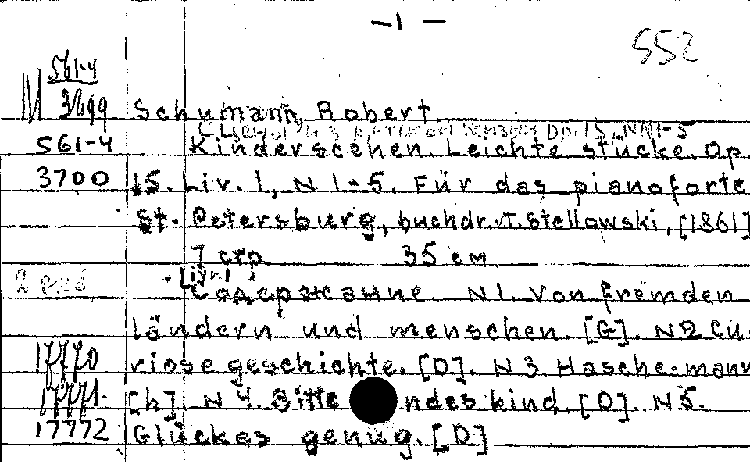 — 1 —
552
561-4
3699 Schumann, Robert.
561-4 Kinderscehen. Leichte stücke. Op.
3700 15. Liv. 1, N 1-5. Für das pianoforte
St. Petersburg, buchdr. T. Stellowski, [1861]
7 стр 35 см
Содержание N1. Von fremden
ländern und menschen. [G]. N2 Cu-
17770 riose geschichte. [D]. N3 Hasche-mann
17771. [h]. N4. Bitte ndes kind. [D]. N5.
17772 Glückes genug. [D]